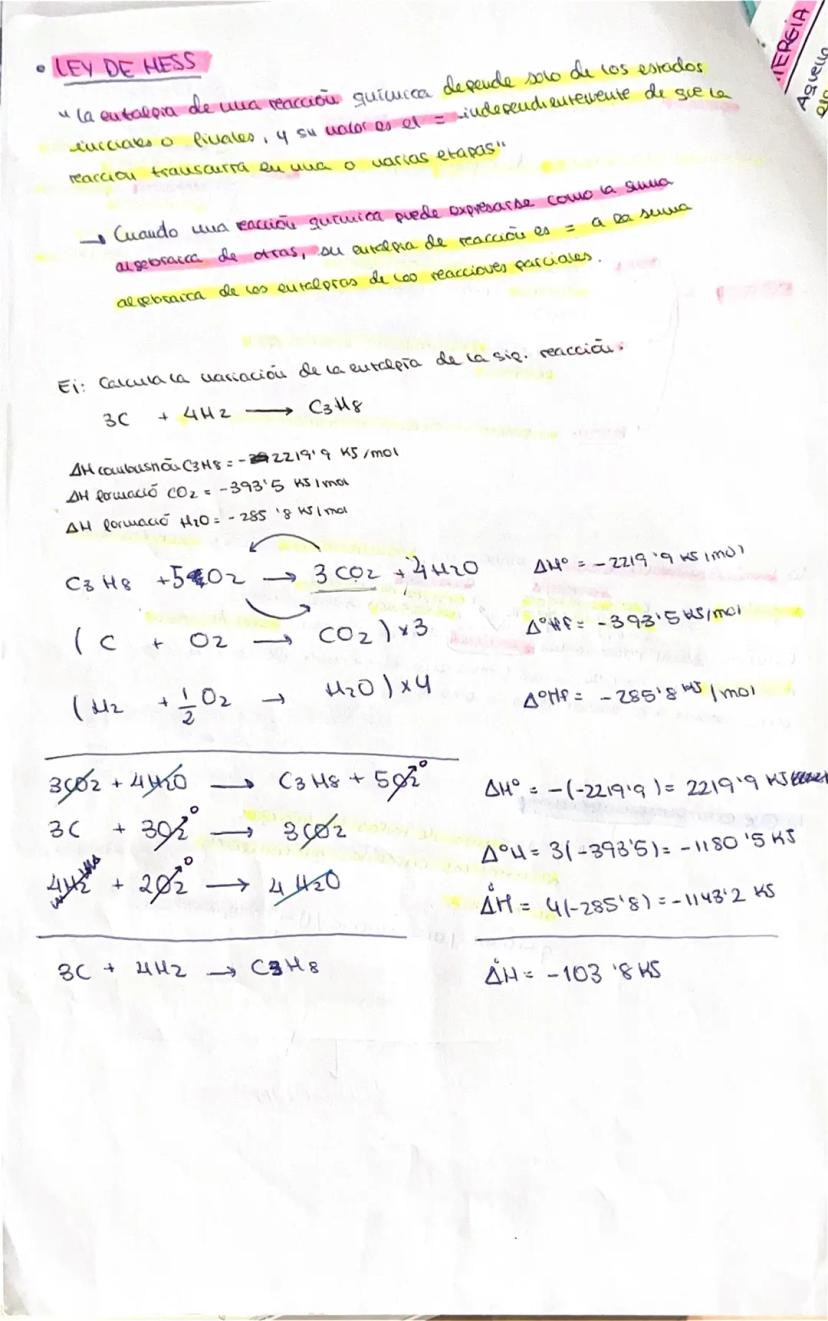 • LEY DE HESS
"La entalpia de una reacción química depende solo de los estados
iniciales o finales, y su valor es el = independientemente de que la
reacción transcurra en una o varias etapas"
→ Cuando una reacción química puede expresarse como la suma
algebraica de otras, su entalpia de reacción es = a la suma
algebraica de las entalpias de las reacciones parciales.
Ej: Calcula la variación de la entalpia de la sig. reacción.
3C + 4H2 → C3H8
ΔH combustión C3H8 = -2219'9 KJ/mol
ΔH formació CO2 = -393'5 KJ/mol
ΔH formació H2O = -285'8 KJ/mol
C3H8 + 5O2 → 3CO2 + 4H2O ΔHº = -2219'9 KJ/mol
(C + O2 → CO2) x3 ΔºHf = -393'5 KJ/mol
(H2 + 1/2 O2 → H2O) x4 ΔºHf = -285'8 KJ/mol
3CO2 + 4H2O → C3H8 + 5O2 0 ΔHº = -(-2219'9) = 2219'9 KJ
3C + 3O2 0 → 3CO2 ΔºH = 3(-393'5) = -1180'5 KJ
4H2 + 2O2 0 → 4H2O ΔºH = 4(-285'8) = -1143'2 KJ
3C + 4H2 → C3H8 ΔºH = -103'8 KJ
ERGIA
Aquella